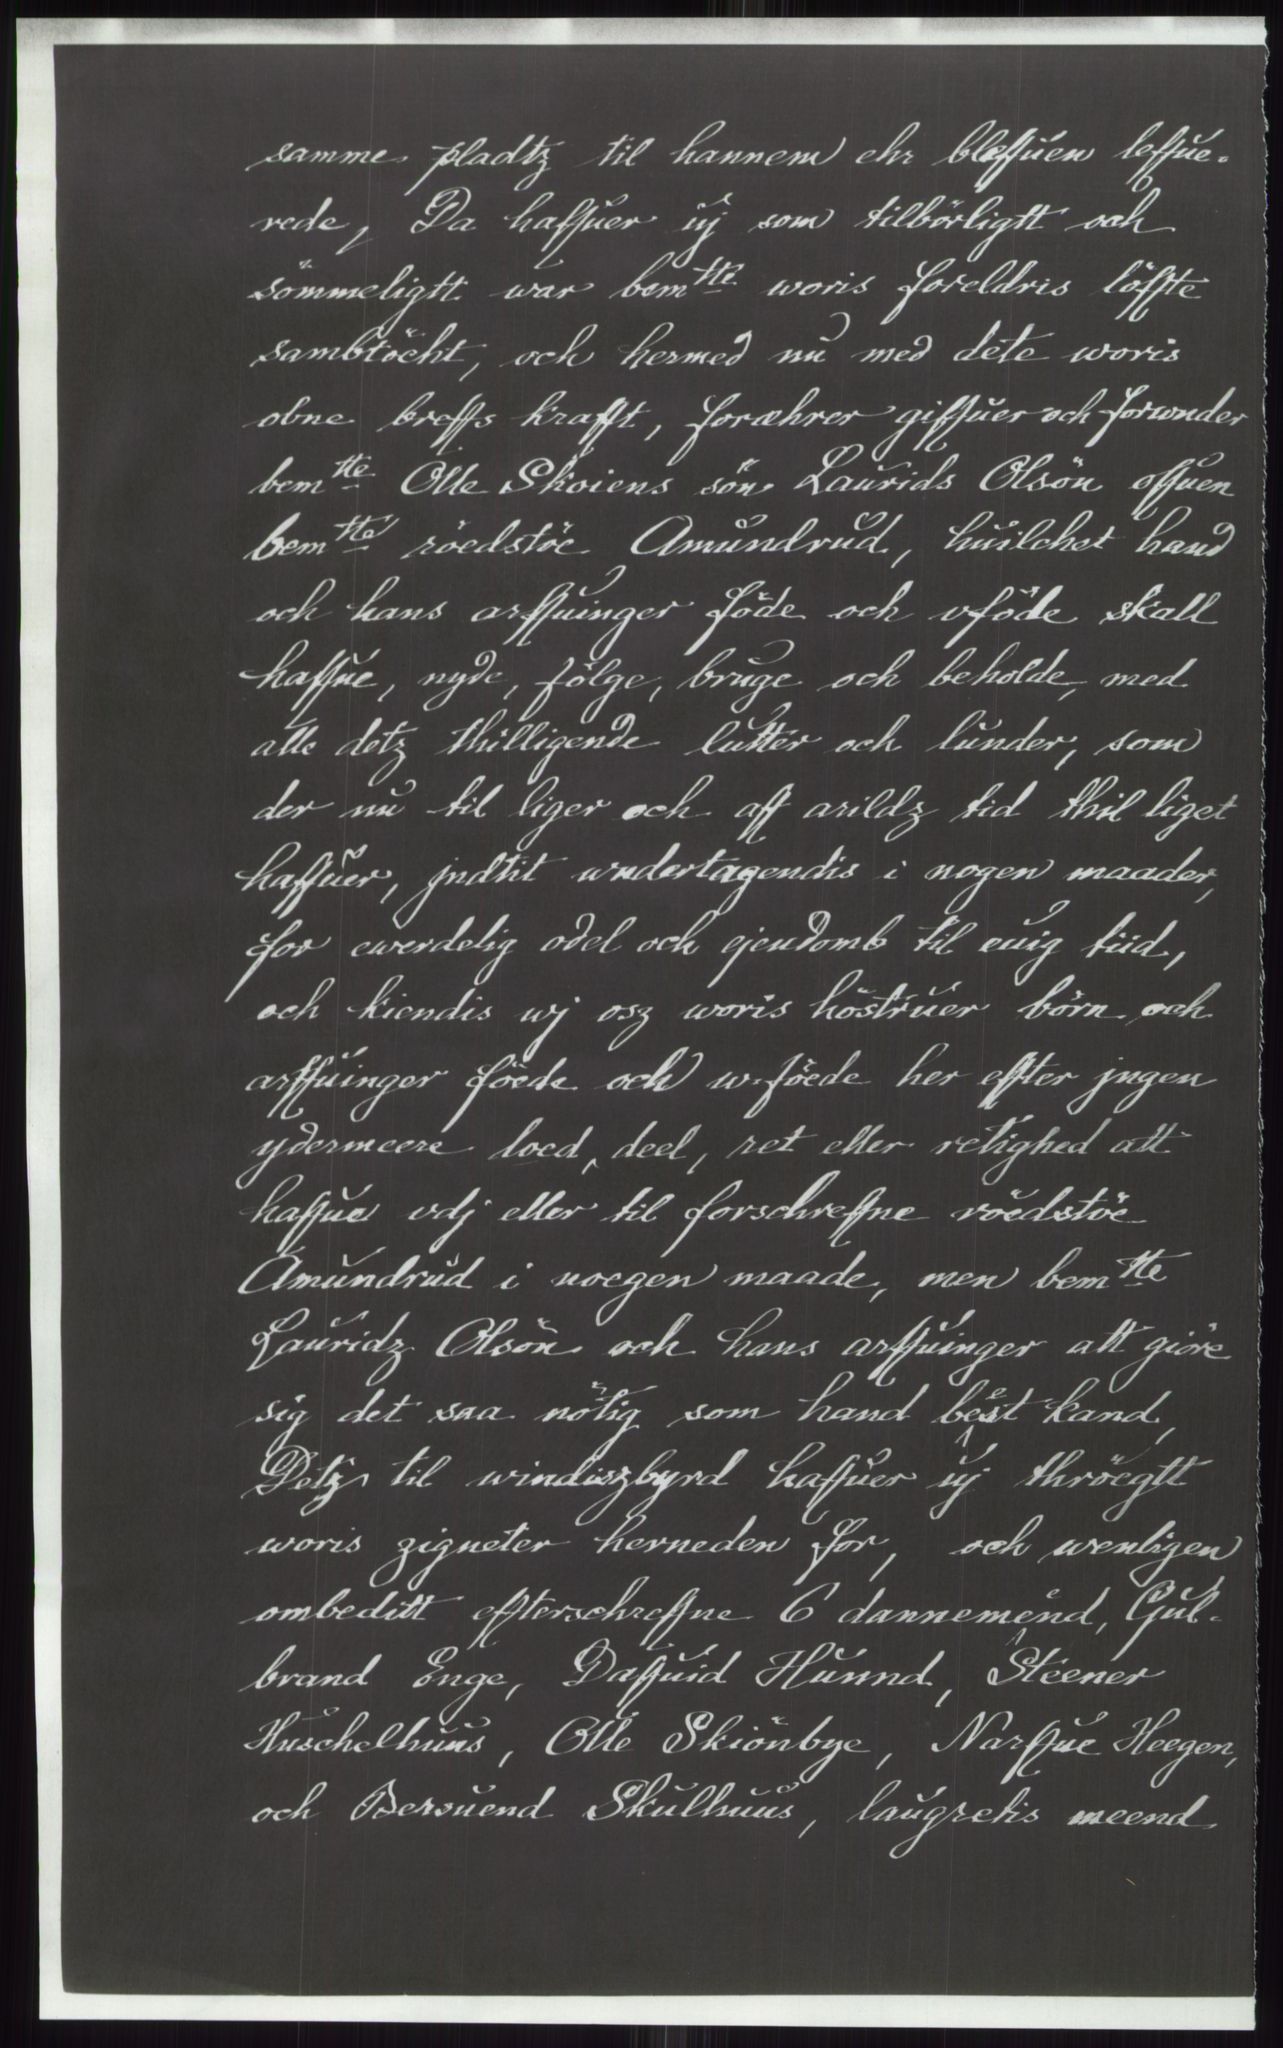 samme pladtz til hannem ehr bleffuen leffue-
rede, Da haffuer uj som tilbörligtt och
sömmeligtt war bemtte woris foreldris löffte
sambtöcht, och hermed nu med dete woris
obne breffs krafft, foræhrer giffuer och forunder
bemtte Olle Skoiens sön Laurids Olsön offuen
bemtte röedstöe Amundrud, huilchet hand
och hans arffuinger föde och vföde skall
haffue, nyde, fölge, bruge och beholde, med
alle detz thilligende lutter och lunder, som
der nu til liger och aff arildz tid thil liget
haffuer, jndtit undertagendis i nogen maader,
for ewerdelig odel och ejendomb til euig tiid,
och kiendis wj osz woris höstruer börn och
arffuinger föede och w-föede her effter jngen
ydermeere loed, deel, ret eller retighed att
haffue vdj eller til forschreffne röedstöe
Amundrud i noegen maade, men bemtte
Lauridz Olsön och hans arffuinger att giöre
sig det saa nötig som hand beest kand,
Detz til windiszbyrd haffuer uj thröegtt
woris zigneter herneden for, och wenligen
ombeditt effterschreffne 6 danneméend, Gul-
brand Enge, Daffuid Hunnd, Steener
Huschelhuus, Olle Skiönbye, Narffue Heegen,
och Bersuend Skulhuus, laugretis meend